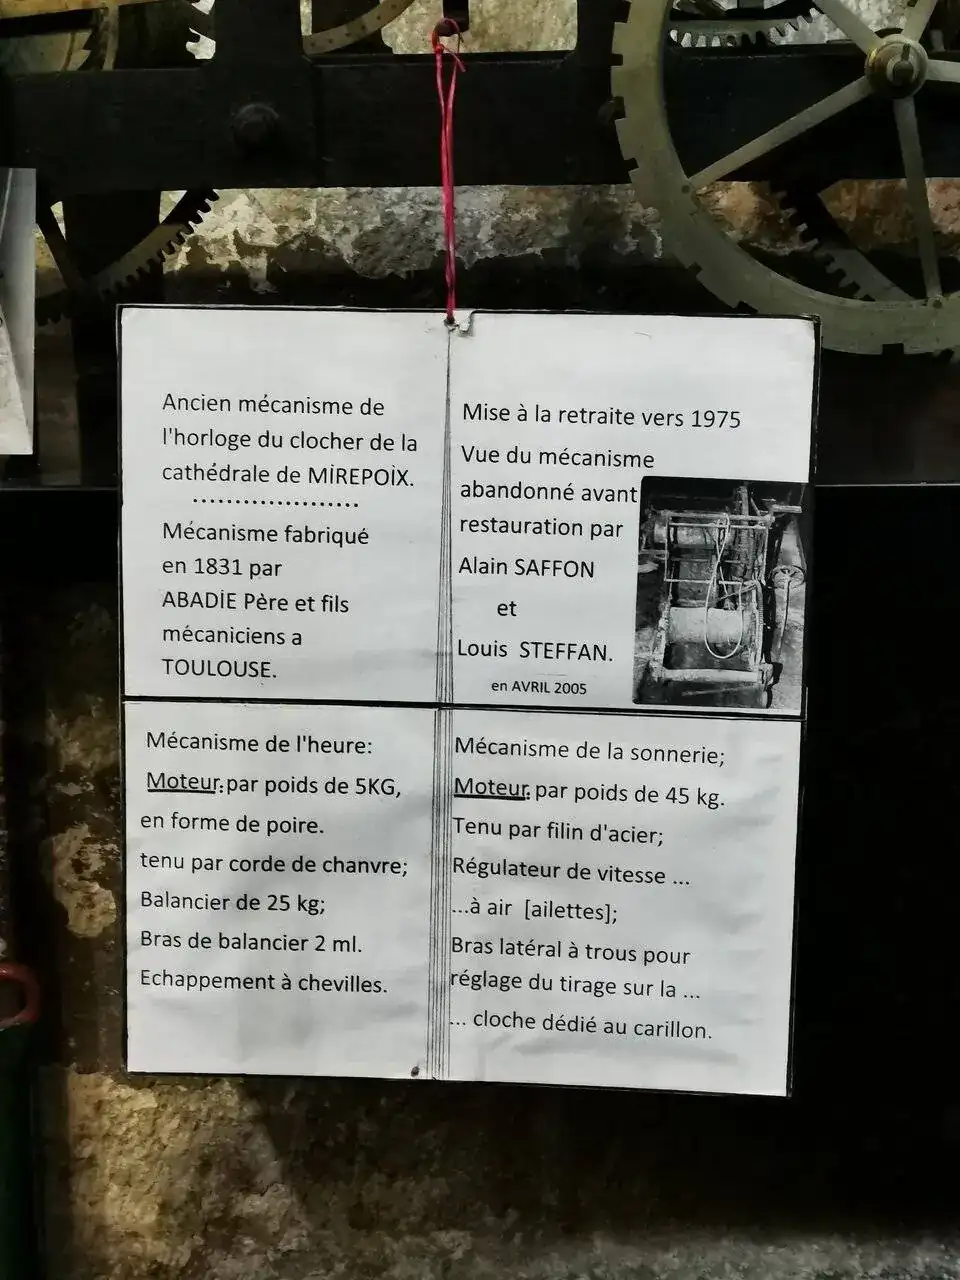 Ancien mécanisme de
l'horloge du clocher de la
cathédrale de MİREPOİX.
...................
Mécanisme fabriqué
en 1831 par
ABADİE Père et fils
mécaniciens a
TOULOUSE.
Mise à la retraite vers 1975
Vue du mécanisme
abandonné avant
restauration par
Alain SAFFON
et
Louis STEFFAN.
en AVRIL 2005
Mécanisme de l'heure:
Moteur: par poids de 5KG,
en forme de poire.
tenu par corde de chanvre;
Balancier de 25 kg;
Bras de balancier 2 ml.
Echappement à chevilles.
Mécanisme de la sonnerie;
Moteur: par poids de 45 kg.
Tenu par filin d'acier;
Régulateur de vitesse ...
...à air [ailettes];
Bras latéral à trous pour
réglage du tirage sur la ...
... cloche dédié au carillon.